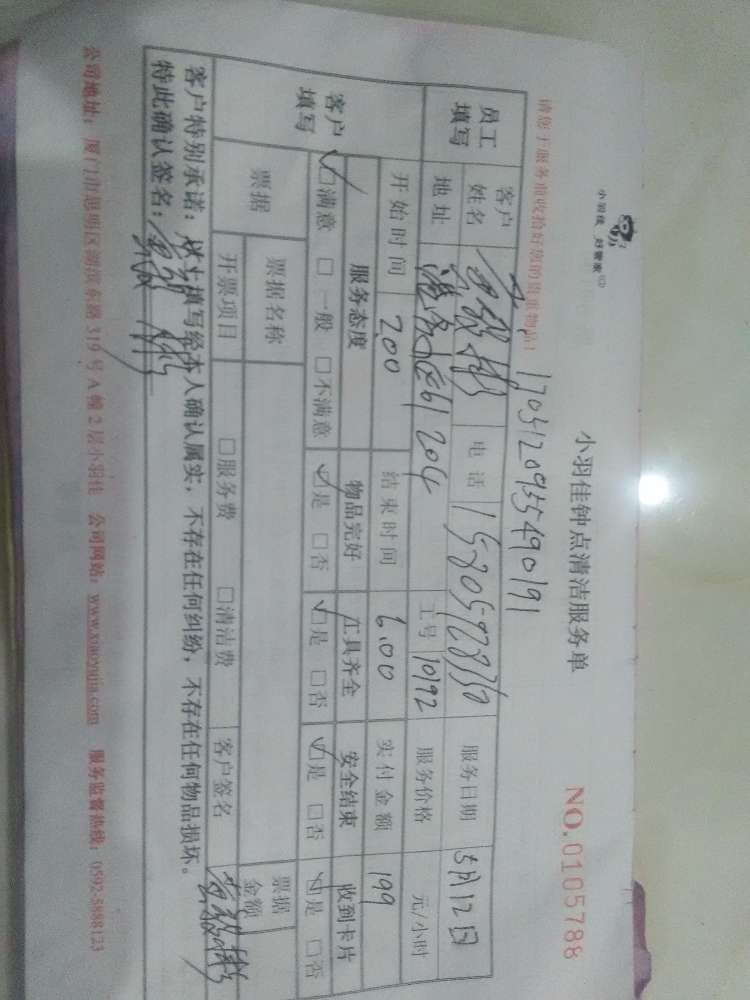 小羽佳 好管家
小羽佳钟点清洁服务单
NO.0105788
请您于服务前收拾好您的贵重物品!
1705120955490191
员工填写 客户姓名 电话 服务日期 5月12日
地址 204 工号 10192 服务价格 元/小时
客户填写 开始时间 2.00 结束时间 6.00 实付金额 199
服务态度 物品完好 工具齐全 安全结束 收到卡片
☑满意 □一般 □不满意 ☑是 □否 ☑是 □否 ☑是 □否 ☑是 □否
票据 票据名称 票据金额
开票项目 □服务费 □清洁费 客户签名
客户特别承诺:以上填写经本人确认属实,不存在任何纠纷,不存在任何物品损坏。
特此确认签名:
公司地址:厦门市思明区湖滨东路319号A幢2层小羽佳 公司网站:www.xiaoyujia.com 服务监督热线:0592-5888123